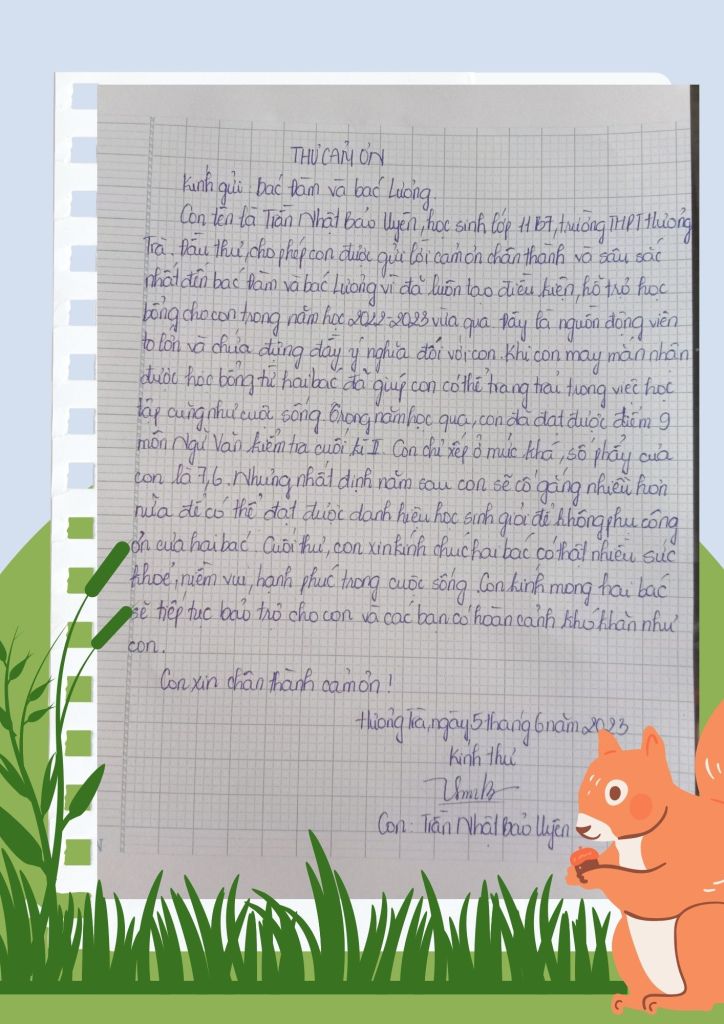 THƯ CẢM ƠN
Kính gửi: bác Đàm và bác Lương.
Con tên là Trần Nhật Bảo Uyên, học sinh lớp 11B7, trường THPT Hương
Trà. Đầu thư, cho phép con được gửi lời cảm ơn chân thành và sâu sắc
nhất đến bác Đàm và bác Lương vì đã luôn tạo điều kiện, hỗ trợ học
bổng cho con trong năm học 2022-2023 vừa qua. Đây là nguồn động viên
to lớn và chứa đựng đầy ý nghĩa đối với con. Khi con may mắn nhận
được học bổng từ hai bác đã giúp con có thể trang trải trong việc học
tập cũng như cuộc sống. Trong năm học qua, con đã đạt được điểm 9
môn Ngữ Văn kiểm tra cuối kì II. Con chỉ xếp ở mức khá, số phẩy của
con là 7,6. Nhưng nhất định năm sau con sẽ cố gắng nhiều hơn
nữa để có thể đạt được danh hiệu học sinh giỏi để không phụ công
ơn của hai bác. Cuối thư, con xin kính chúc hai bác có thật nhiều sức
khoẻ, niềm vui, hạnh phúc trong cuộc sống. Con kính mong hai bác
sẽ tiếp tục bảo trợ cho con và các bạn có hoàn cảnh khó khăn như
con.
Con xin chân thành cảm ơn!
Hương Trà, ngày 5 tháng 6 năm 2023
Kính thư
Con: Trần Nhật Bảo Uyên